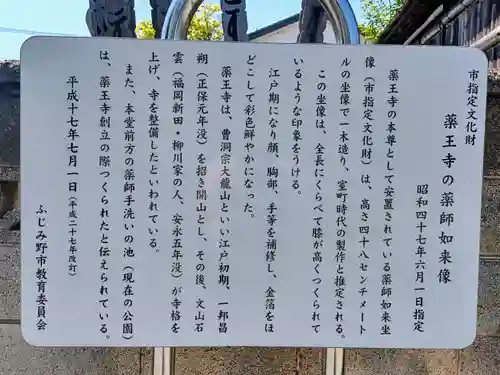 市指定文化財
薬王寺の薬師如来像
昭和四十七年六月一日指定
薬王寺の本尊として安置されている薬師如来坐
像（市指定文化財）は、高さ四十八センチメート
ルの坐像で一木造り、室町時代の製作と推定される。
この坐像は、全長にくらべて膝が高くつくられて
いるような印象をうける。
江戸期になり顔、胸部、手等を補修し、金箔をほ
どこして彩色鮮やかになった。
薬王寺は、曹洞宗大龍山といい江戸初期、一邦昌
朔（正保元年没）を招き開山とし、その後、文山石
雲（福岡新田・柳川家の人、安永五年没）が寺格を
上げ、寺を整備したといわれている。
また、本堂前方の薬師手洗いの池（現在の公園）
は、薬王寺創立の際つくられたと伝えられている。
平成十七年七月一日（平成二十七年改訂）
ふじみ野市教育委員会